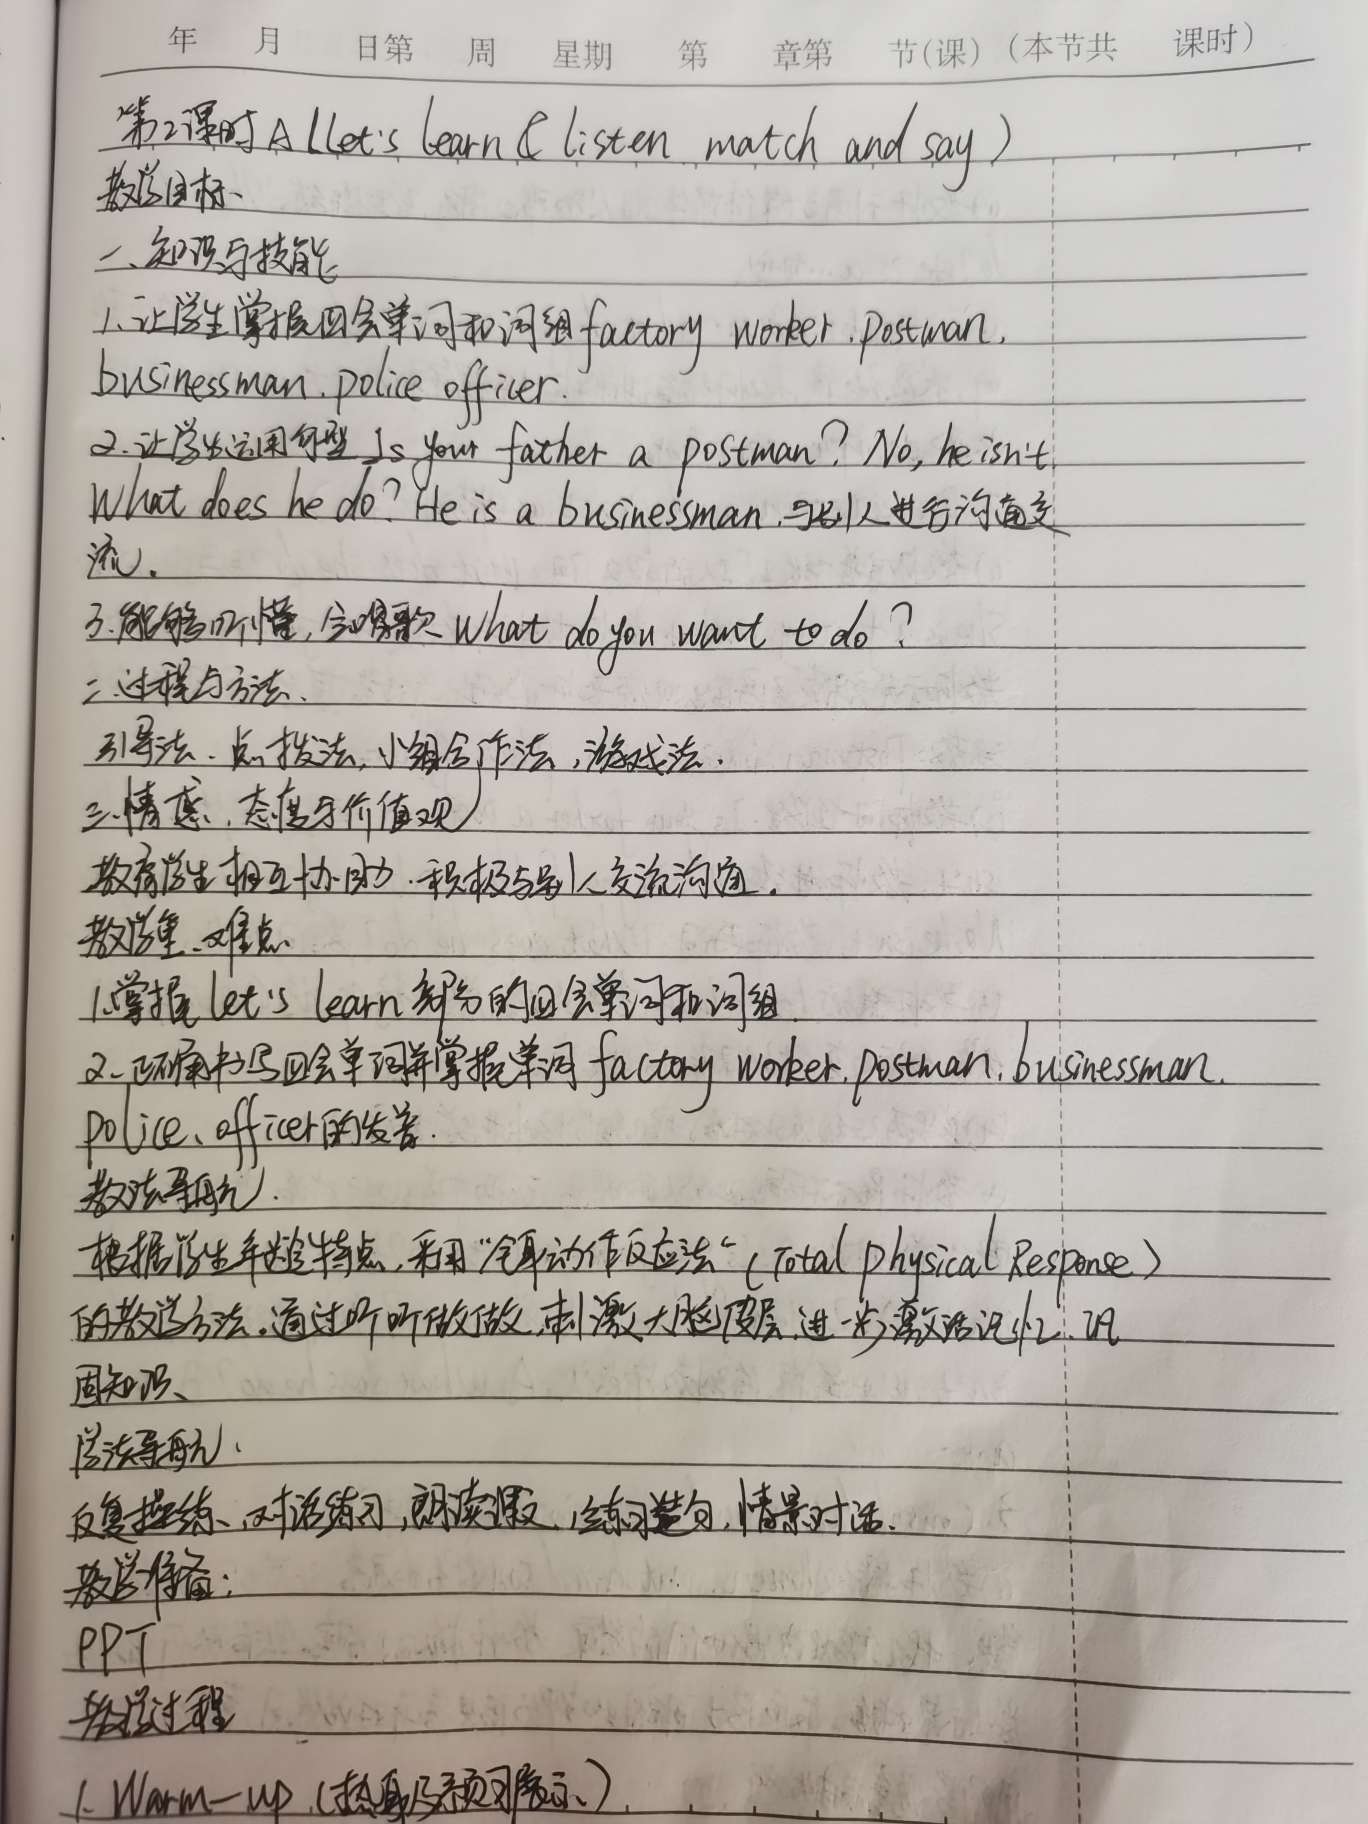 年 月 日第 周 星期 第 章第 节(课) (本节共 课时)
第2课时 A (Let's learn & listen match and say)
教学目标、
一、知识与技能
1.让学生掌握四会单词和词组 factory worker. postman.
businessman. police officer.
2.让学生运用句型 Is your father a postman? No, he isn't.
What does he do? He is a businessman. 与别人进行沟通交
流。
3.能够听懂,会唱歌 What do you want to do?
二.过程与方法.
引导法.点拨法,小组合作法,游戏法.
三.情感,态度与价值观
教育学生相互协助.积极与别人交流沟通.
教学重、难点
1.掌握 Let's learn 部分的四会单词和词组.
2.正确书写四会单词并掌握单词 factory worker. postman. businessman.
police、officer的发音.
教法导航.
根据学生年龄特点,采用"全身动作反应法"(Total Physical Response)
的教学方法。通过听听做做,刺激大脑皮层,进一步激活记忆.巩
固知识、
学法导航.
反复操练、对话练习,朗读课文,练习造句,情景对话.
教学准备:
PPT
教学过程
1. Warm-up (热身及预习展示.)